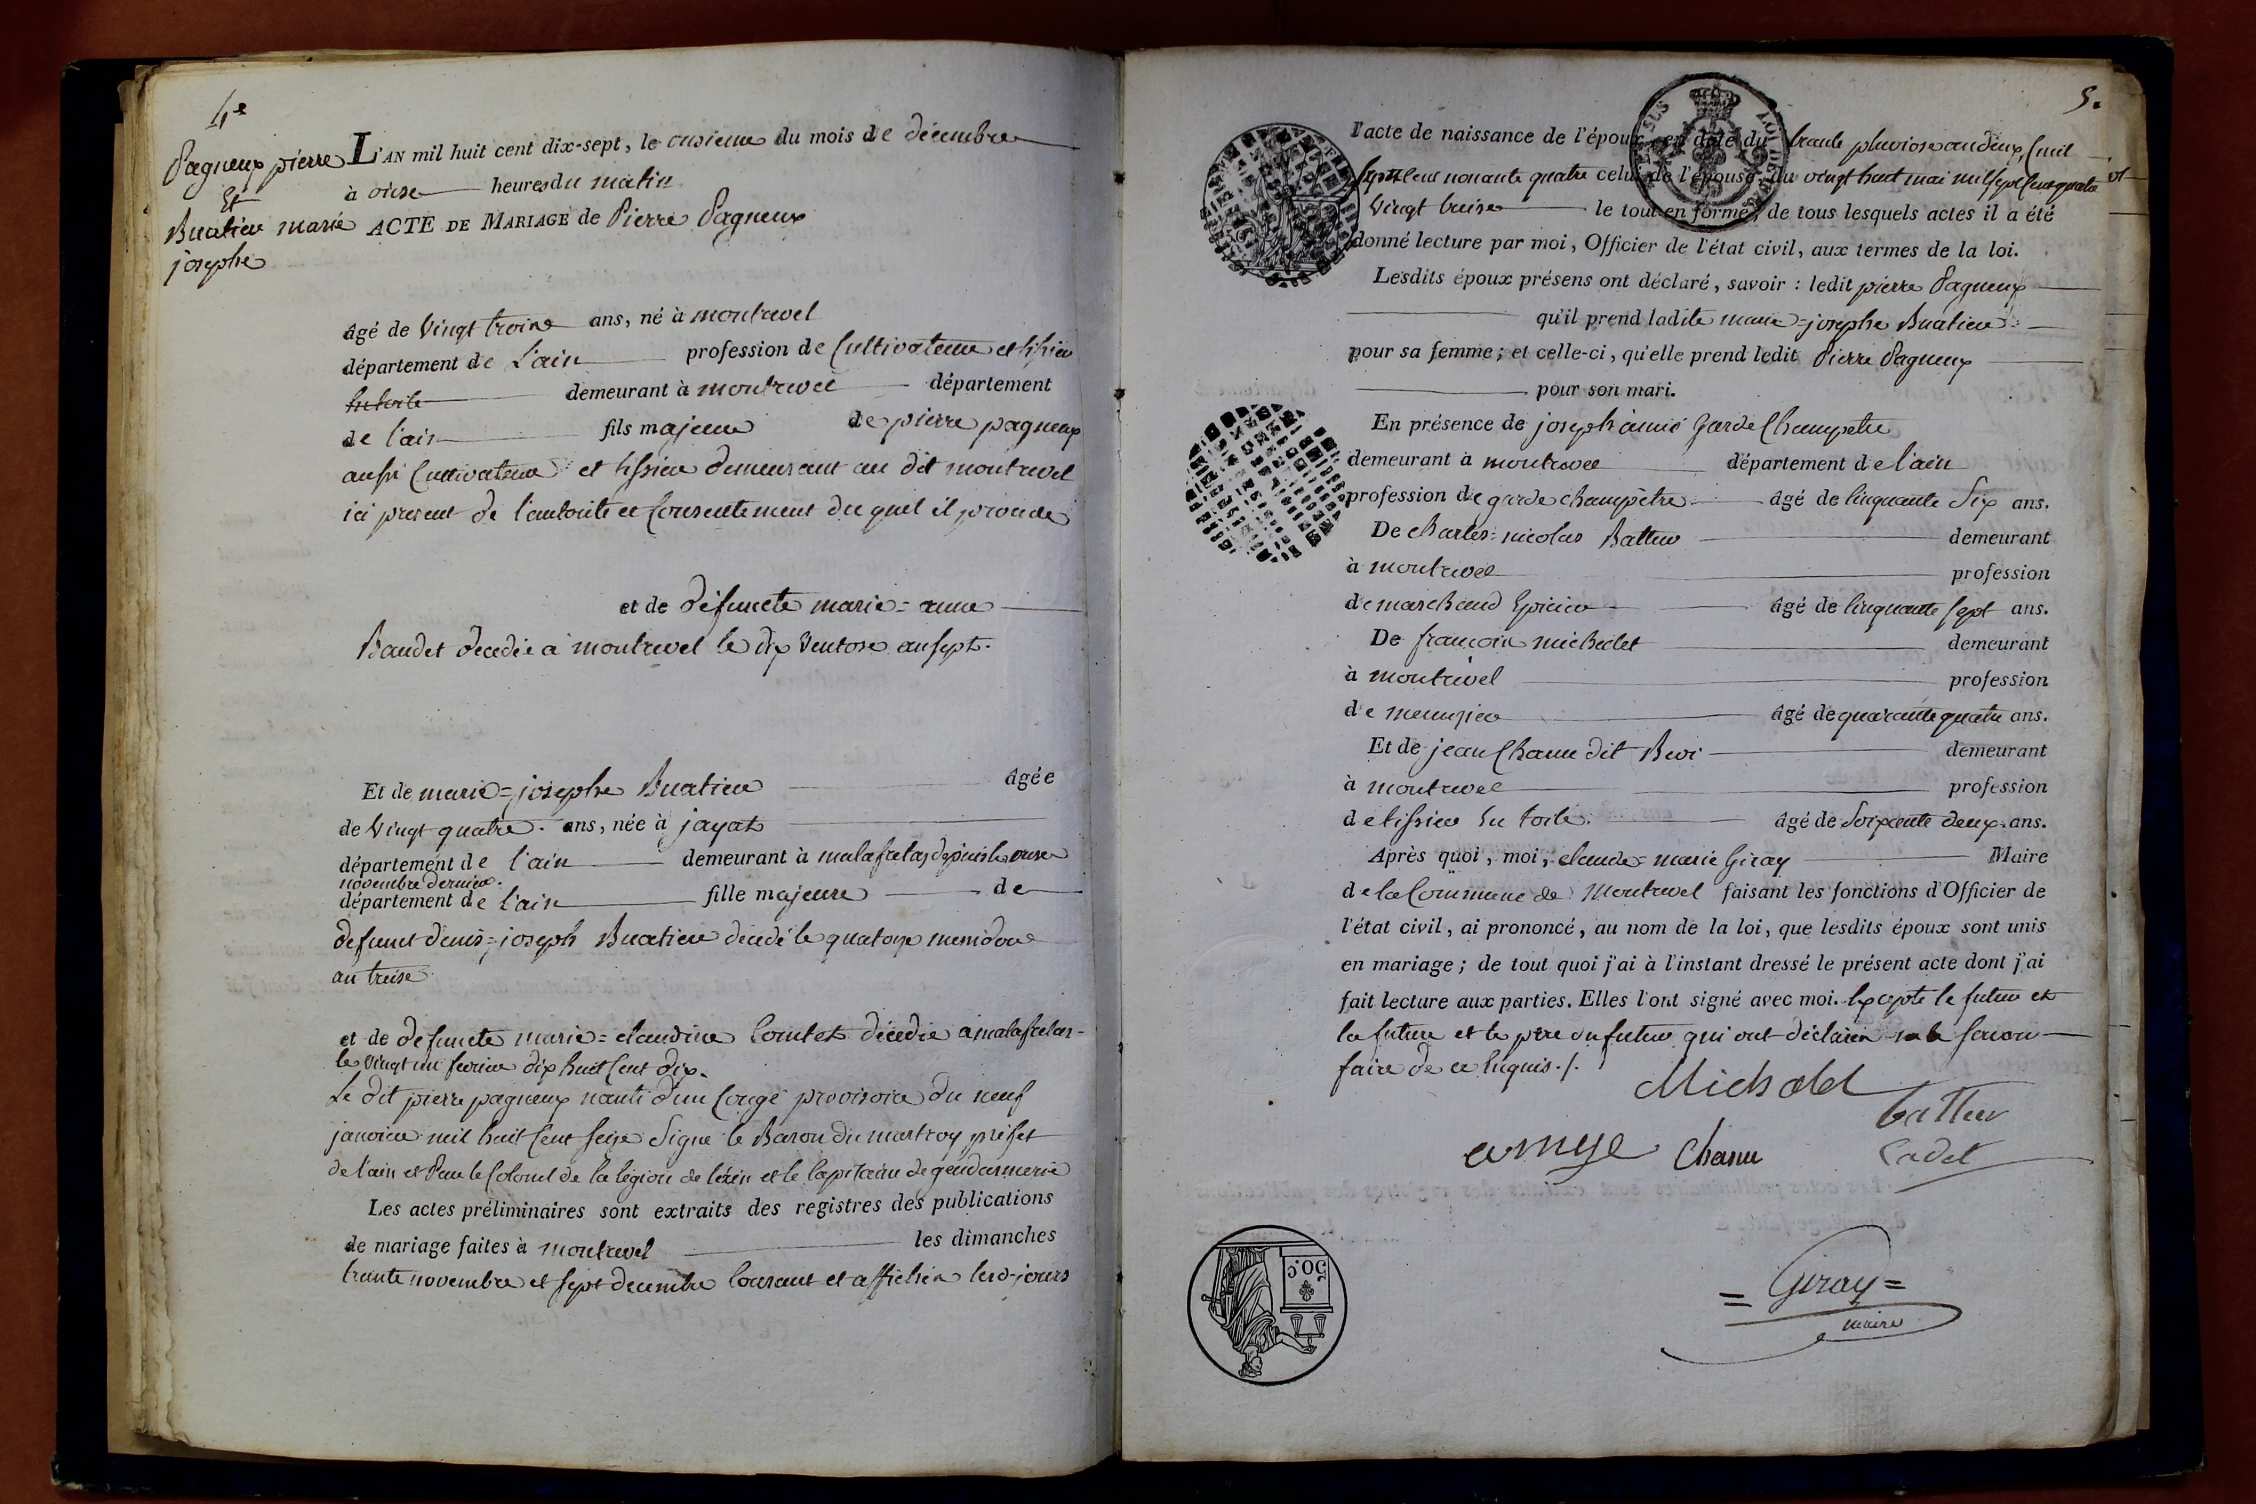 4e
Pagneux pierre
Et
Buatier marie
josephe
L'AN mil huit cent dix-sept, le onsieme du mois de décembre
à onse heures du matin
ACTE DE MARIAGE de Pierre Pagneux
âgé de vingt trois ans, né à montrevel
département de L'ain profession de Cultivateur et tissier
demeurant à montrevel département
de l'ain fils majeur de pierre pagneux
aussi Cultivateur et tissier demeurant au dit montrevel
ici present de l'autorité et Consentement du quel il procede
et de défuncte marie=anne
Baudet decedée a montrevel le dix ventose an sept.
Et de marie=josephe Buatier âgée
de vingt quatre ans, née à jayat
département de l'ain demeurant à malafretaz depuis le onse
novembre dernier.
département de l'ain fille majeure de
defunct denis=joseph Buatier decedé le quatorze messidor
an treise
et de defuncte marie=claudine Comtet décédée a malafretas
le vingt un fevrier dix huit Cent dix.
Le dit pierre pagneux nanti d'un Congé provisoire du neuf
janvier mil huit Cent seize Signé le Baron du martroy préfet
de l'ain et Par le Colonel de la légion de l'ain et le Capitaine de gendarmerie
Les actes préliminaires sont extraits des registres des publications
de mariage faites à montrevel les dimanches
trente novembre et sept decembre Courant et affichés les d. jours
5.
l'acte de naissance de l'époux, en date du trente pluviose an deux, (mil
sept Cent nonante quatre celui de l'épouse du vingt huit mai mil sept Cent quatre
vingt treise le tout en forme; de tous lesquels actes il a été
donné lecture par moi, Officier de l'état civil, aux termes de la loi.
Lesdits époux présens ont déclaré, savoir : ledit pierre Pagneux
qu'il prend ladite marie=josephe Buatier
pour sa femme; et celle-ci, qu'elle prend ledit Pierre Pagneux
pour son mari.
En présence de joseph amié garde Champetre
demeurant à montrevel département de l'ain
profession de garde champêtre âgé de Cinquante Six ans.
De charles=nicolas Batteur demeurant
à montrevel profession
de marchand Epicier âgé de Cinquante sept ans.
De françois michelet demeurant
à montrevel profession
de menuzier âgé de quarante quatre ans.
Et de jean Chanu dit demeurant
à montrevel profession
de tissier en toile. âgé de Soixante deux ans.
Après quoi, moi, claude=marie Giray Maire
de la Commune de Montrevel faisant les fonctions d'Officier de
l'état civil, ai prononcé, au nom de la loi, que lesdits époux sont unis
en mariage; de tout quoi j'ai à l'instant dressé le présent acte dont j'ai
fait lecture aux parties. Elles l'ont signé avec moi. Excepté le futur et
la future et le père du futur qui ont déclaré ne le savoir
faire de ce Enquis./.
Michelet
batteur
amye Chanu Cadet
50.c
=Giray=
maire